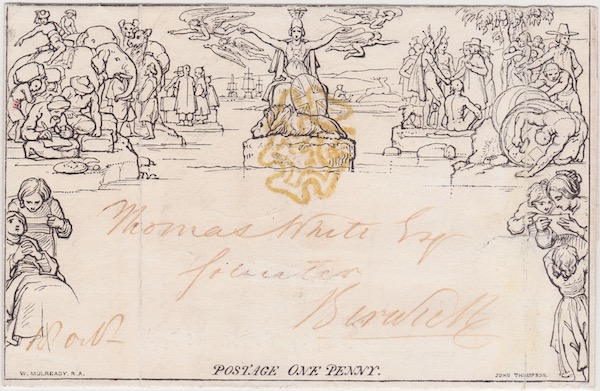 Thomas White Esq
Solicitor
Berwick
W. MULREADY. R.A.
POSTAGE ONE PENNY.
JOHN THOMPSON.